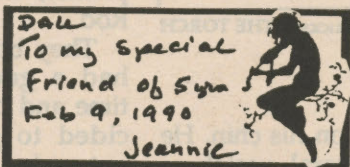 Dall
To my Special
Friend of 5 yrs
Feb 9, 1990
Jeannie